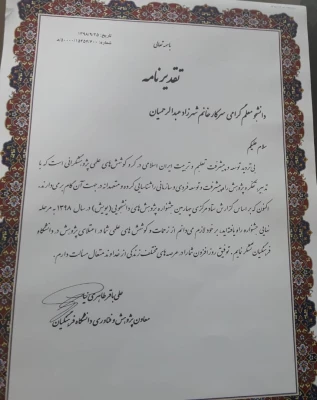 باسمه تعالی
تاریخ: ۱۳۹۸/۹/۲۵
تقدیرنامه
دانشجو معلم گرامی سرکار خانم شهرزاد عبدالرحمیان
سلام علیکم
بی‌تردید توسعه و پیشرفت تعلیم و تربیت ایران اسلامی در گرو کوشش‌های علمی پژوهشگرانی است که با
تدبیر، تفکر و پژوهش، راه پیشرفت و توسعه فردی و سازمانی را شناسایی کرده و متعهدانه در جهت آن گام برمی‌دارند.
اکنون که بر اساس گزارش ستاد مرکزی چهارمین جشنواره پژوهش‌های دانشجویی (پویش) در سال ۱۳۹۸ به مرحله
نهایی جشنواره راه یافته‌اید، بر خود لازم می‌دانم از زحمات و کوشش‌های علمی شما در اعتلای پژوهش در دانشگاه
فرهنگیان تشکر نمایم. توفیق روزافزون شما را در عرصه‌های مختلف زندگی از خداوند متعال مسألت دارم.
علی باقر طاهری نیا
معاون پژوهش و فناوری دانشگاه فرهنگیان